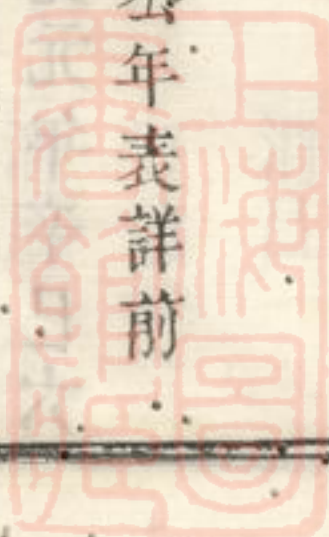 年表詳前
上海圖
書館藏